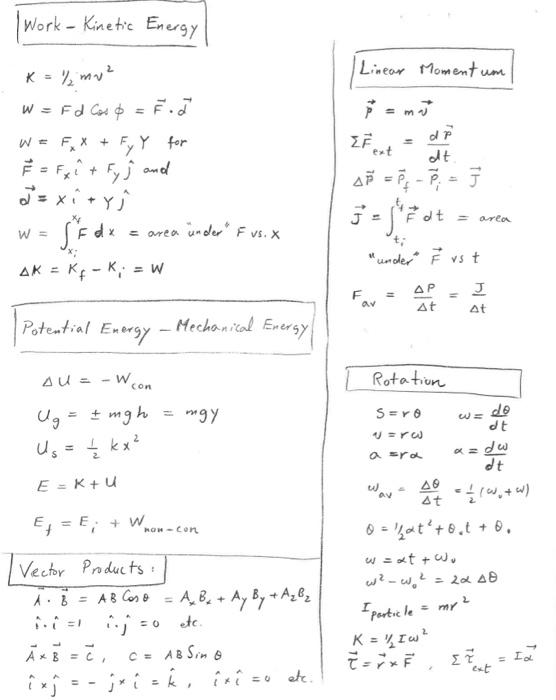 Work – Kinetic Energy
K = 1/2 mv²
W = Fd Cos ϕ = F⃗·d⃗
W = FₓX + F_yY for
F⃗ = Fₓî + F_yĵ and
d⃗ = Xî + Yĵ
W = ∫_{xᵢ}^{x_f} F dx = area "under" F vs. X
ΔK = K_f – Kᵢ = W
Potential Energy – Mechanical Energy
ΔU = – W_con
U_g = ± mgh = mgy
U_s = 1/2 kx²
E = K + U
E_f = Eᵢ + W_non-con
Vector Products:
A⃗·B⃗ = AB Cos θ = AₓBₓ + A_yB_y + A_zB_z
î·î = 1 î·ĵ = 0 etc.
A⃗×B⃗ = C⃗, C = AB Sin θ
î×ĵ = – ĵ×î = k̂, î×î = 0 etc.
Linear Momentum
p⃗ = mv⃗
ΣF⃗_ext = dP⃗/dt
ΔP⃗ = P⃗_f – P⃗ᵢ = J⃗
J⃗ = ∫_{tᵢ}^{t_f} F⃗ dt = area
"under" F⃗ vs t
F_av = ΔP/Δt = J/Δt
Rotation
S = rθ ω = dθ/dt
v = rω
a = rα α = dω/dt
ω_av = Δθ/Δt = 1/2(ω₀+ω)
θ = 1/2αt² + θ₀t + θ₀
ω = αt + ω₀
ω² – ω₀² = 2α Δθ
I_particle = mr²
K = 1/2 Iω²
τ⃗ = r⃗×F⃗, Στ⃗_ext = Iα⃗